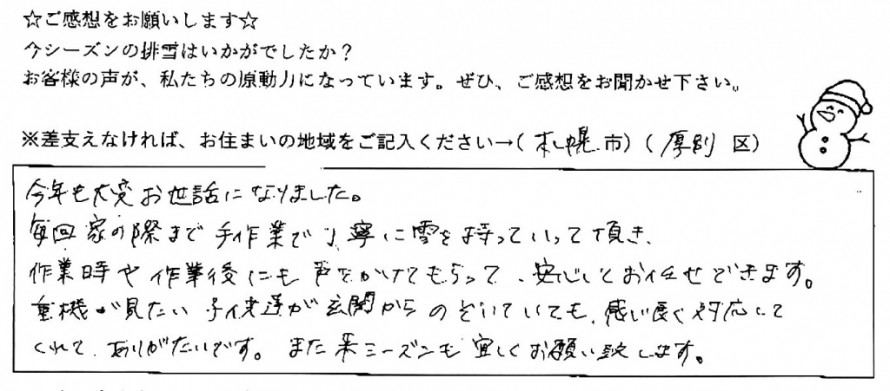 ☆ご感想をお願いします☆
今シーズンの排雪はいかがでしたか?
お客様の声が、私たちの原動力になっています。ぜひ、ご感想をお聞かせ下さい。
※差支えなければ、お住まいの地域をご記入ください→(札幌市)(厚別区)
今年も大変お世話になりました。
毎回家の際まで手作業で丁寧に雪を持っていって頂き、
作業時や作業後にも声をかけてもらって、安心しておまかせできます。
重機が見たい子供達が玄関からのぞいていても、感じ良く対応して
くれて、ありがたいです。また来シーズンも宜しくお願い致します。